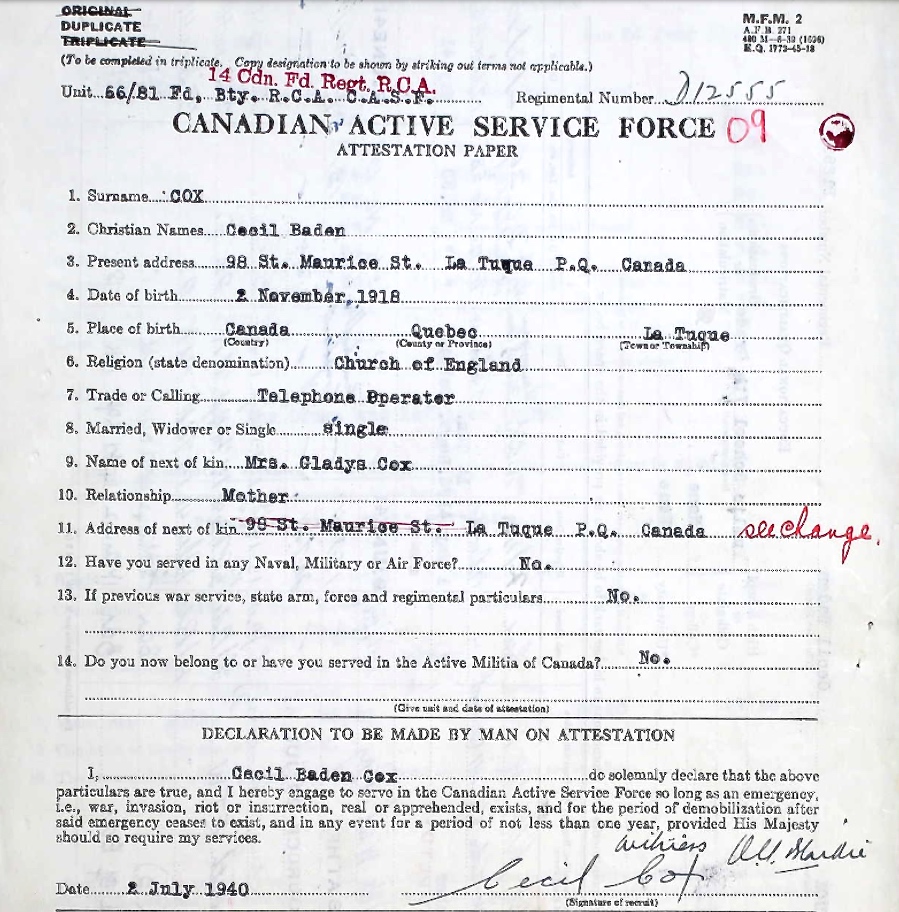 ORIGINAL
DUPLICATE
TRIPLICATE
M.F.M. 2
A.F.B. 271
H.Q. 1772-45-18
(To be completed in triplicate. Copy designation to be shown by striking out terms not applicable.)
14 Cdn. Fd. Regt. R.C.A.
Unit 66/81 Fd, Bty. R.C.A. C.A.S.F. Regimental Number D12555
CANADIAN ACTIVE SERVICE FORCE 09
ATTESTATION PAPER
1. Surname COX
2. Christian Names Cecil Baden
3. Present address 98 St. Maurice St. La Tuque P.Q. Canada
4. Date of birth 2 November, 1918
5. Place of birth Canada Quebec La Tuque
(Country) (County or Province) (Town or Township)
6. Religion (state denomination) Church of England
7. Trade or Calling Telephone Operator
8. Married, Widower or Single single
9. Name of next of kin Mrs. Gladys Cox
10. Relationship Mother
11. Address of next of kin 98 St. Maurice St. La Tuque P.Q. Canada see change.
12. Have you served in any Naval, Military or Air Force? No.
13. If previous war service, state arm, force and regimental particulars No.
14. Do you now belong to or have you served in the Active Militia of Canada? No.
(Give unit and date of attestation)
DECLARATION TO BE MADE BY MAN ON ATTESTATION
I, Cecil Baden Cox do solemnly declare that the above
particulars are true, and I hereby engage to serve in the Canadian Active Service Force so long as an emergency,
i.e., war, invasion, riot or insurrection, real or apprehended, exists, and for the period of demobilization after
said emergency ceases to exist, and in any event for a period of not less than one year, provided His Majesty
should so require my services.
witness
Date 2 July 1940 Cecil Cox
(Signature of recruit)